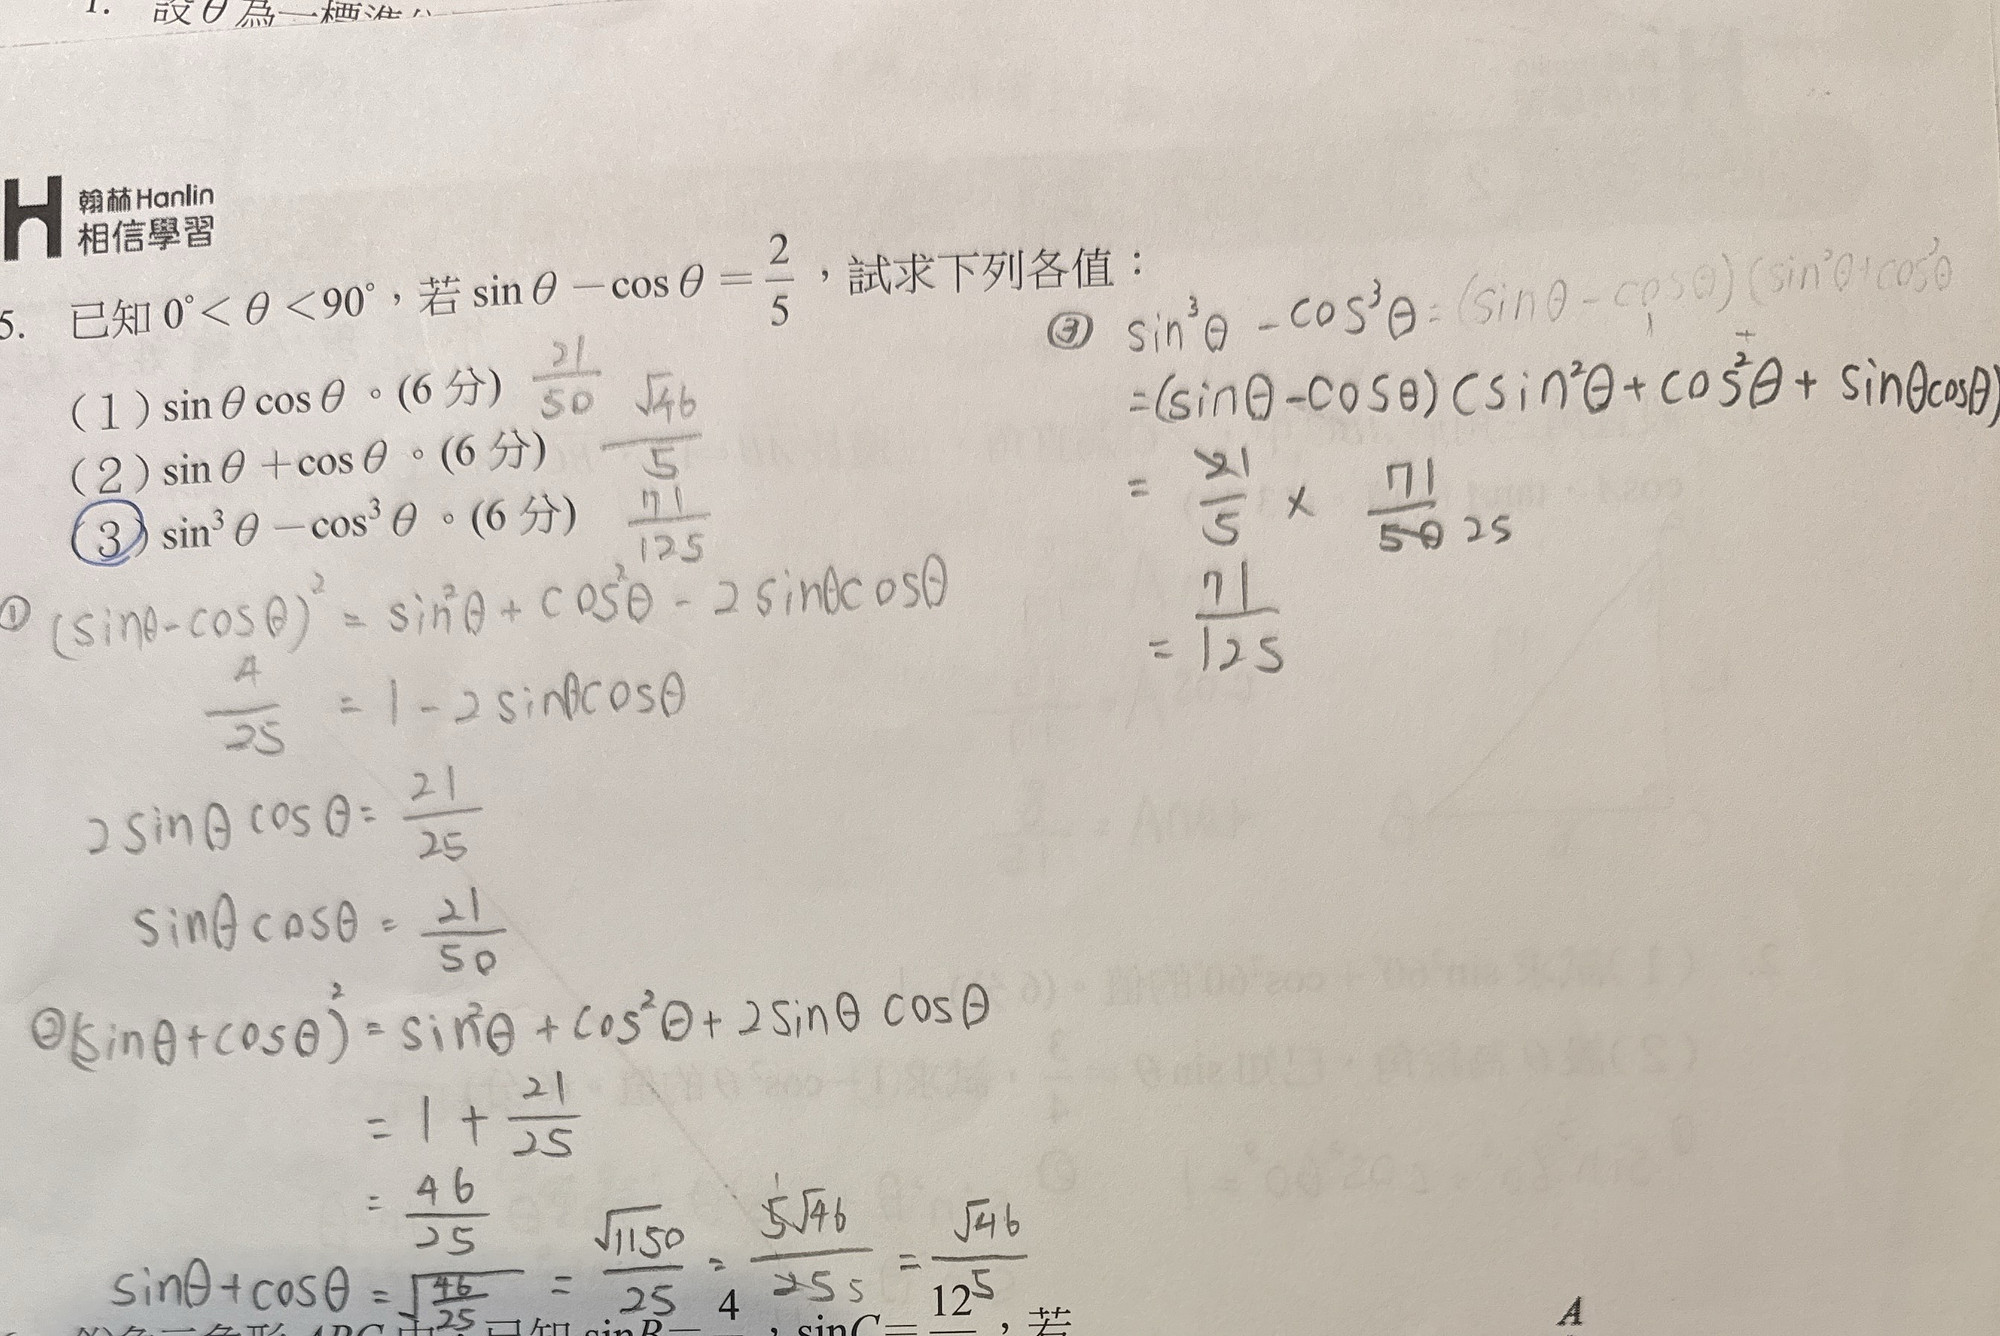 1. 設θ為一標準
翰林 Hanlin
相信學習
5. 已知 0°<θ<90°，若 sinθ−cosθ=2/5，試求下列各值：
(1) sinθcosθ。(6 分) 21/50
(2) sinθ+cosθ。(6 分) √46/5
(3) sin³θ−cos³θ。(6 分) 71/125
① (sinθ-cosθ)² = sin²θ + cos²θ - 2sinθcosθ
4/25 = 1-2sinθcosθ
2sinθcosθ = 21/25
sinθcosθ = 21/50
②(sinθ+cosθ)² = sin²θ + cos²θ + 2sinθcosθ
= 1 + 21/25
= 46/25
sinθ+cosθ = √(46/25) = √1150/25 = 5√46/25 5 = √46/5
③ sin³θ - cos³θ = (sinθ-cosθ)(sin²θ+cos²θ
=(sinθ-cosθ)(sin²θ+cos²θ+sinθcosθ)
= 21/5 × 71/50 25
= 71/125
ABC 中，已知 sinB=4，sinC=12，若
A